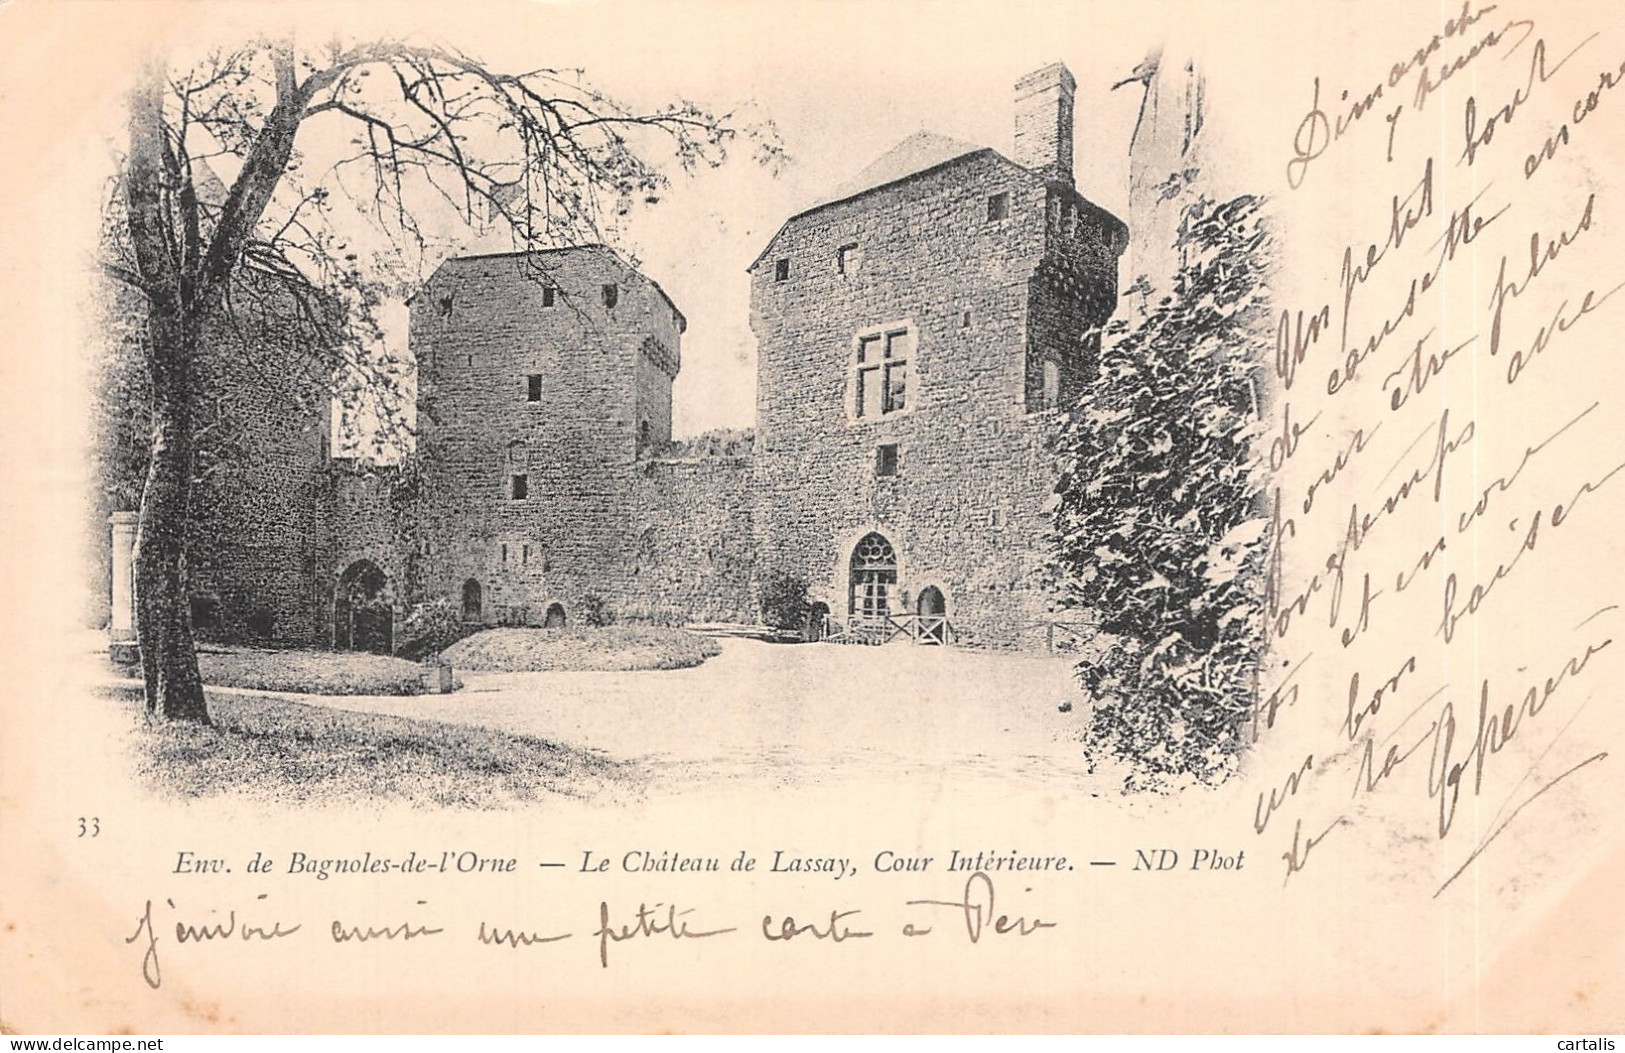 Dimanche
7 heures
Un petit bout
de causette encore
pour être plus
longtemps avec
toi et encore
un bon baiser
de ta
33
Env. de Bagnoles-de-l'Orne — Le Château de Lassay, Cour Intérieure. — ND Phot
J'envoie aussi une petite carte à Père
cartalis
delcampe.net